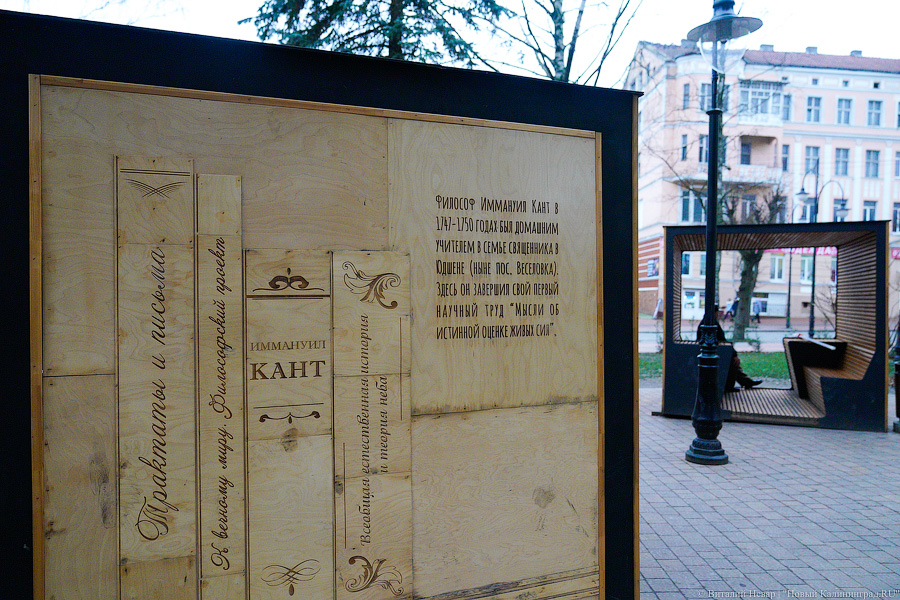 Трактаты и письма
К вечному миру. Философский проект
ИММАНУИЛ
КАНТ
Всеобщая естественная история
и теория неба
Философ Иммануил Кант в
1747-1750 годах был домашним
учителем в семье священника в
Юдшене (ныне пос. Веселовка).
Здесь он завершил свой первый
научный труд "Мысли об
истинной оценке живых сил".
© Виталий Невар / "Новый Калининград.RU"